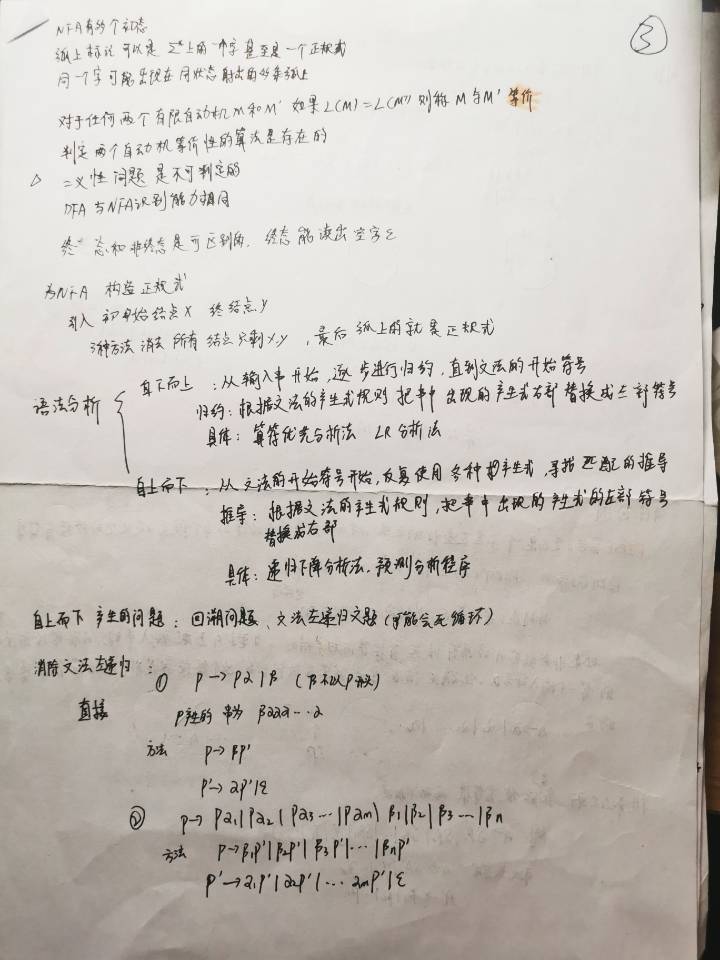 ③
NFA有多个初态
弧上标记可以是Σ*上的一个字甚至是一个正规式
同一个字可能出现在同状态射出的多条弧上
对于任何两个有限自动机M和M' 如果L(M)=L(M') 则称M与M'等价
判定两个自动机等价性的算法是存在的
△ 二义性问题是不可判定的
DFA与NFA识别能力相同
终态和非终态是可区别的. 终态能读出空字ε
为NFA 构造正规式
引入 初始结点X 终结点Y
3种方法消去所有结点只剩X,Y ,最后弧上的就是正规式
语法分析
自下而上:从输入串开始,逐步进行归约,直到文法的开始符号
归约:根据文法的产生式规则 把串中出现的产生式右部替换成左部符号
具体:算符优先分析法 LR分析法
自上而下:从文法的开始符号开始,反复使用各种产生式,寻找匹配的推导
推导:根据文法的产生式规则,把串中出现的产生式的左部符号
替换成右部
具体:递归下降分析法,预测分析程序
自上而下产生的问题:回溯问题、文法左递归文题(可能会无循环)
消除文法左递归:
① P→Pα|β (β不以P开头)
直接 P产生的串为 βααα…α
方法 P→βP'
P'→αP'|ε
② P→Pα1|Pα2|Pα3…|Pαm|β1|β2|β3…|βn
方法 P→β1P'|β2P'|β3P'|…|βnP'
P'→α1P'|α2P'|…αmP'|ε